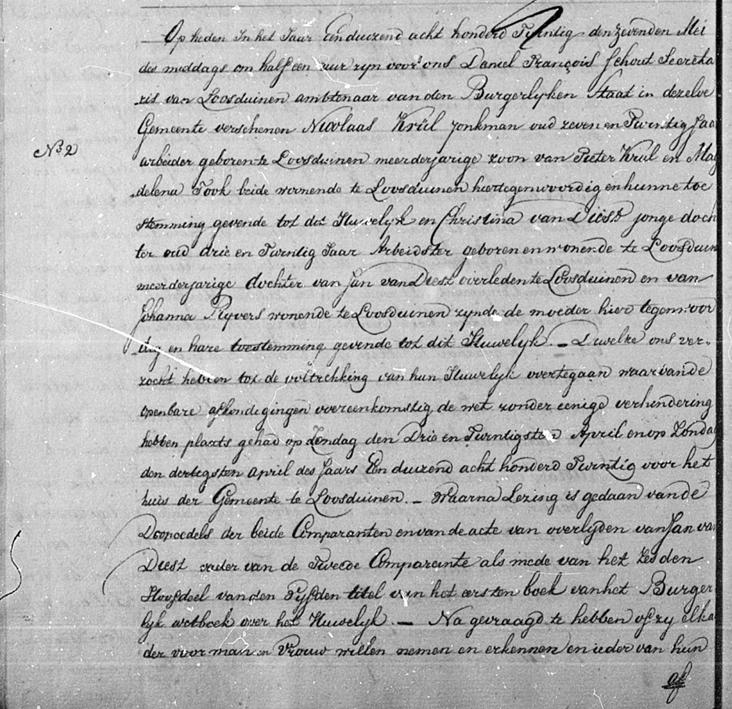 Op heden In het Jaar Eenduizend acht honderd Twintig den zevenden Mei
des middags om half een uur zyn voor ons Daniel François Schout Secreta
ris van Loosduinen ambtenaar van den Burgerlyken Staat in dezelve
Gemeente verschenen Nicolaas Krül jonkman oud zeven en Twintig Jaar
N.º 2
arbeider geboren te Loosduinen meerderjarige zoon van Pieter Krul en Mag
delena Took beide wonende te Loosduinen hier tegenwoordig en hunne toe
stemming gevende tot dit Huwelyk en Christina van Diest jonge doch
ter oud drie en Twintig Jaar Arbeidster geboren en wonende te Loosduin
meerderjarige dochter van Jan van Diest overleden te Loosduinen en van
Johanna Pyvers wonende te Loosduinen zynde de moeder hier tegenwoor
dig en hare toestemming gevende tot dit Huwelyk. — Dewelke ons ver-
zocht hebben tot de voltrekking van hun Huwelyk overtegaan waar van de
openbare afkondegingen overeenkomstig de wet zonder eenige verhindering
hebben plaats gehad op Zondag den Drie en Twintigsten April en op Zondag
den dertigsten April des Jaars Een duizend acht honderd Twintig voor het
huis der Gemeente te Loosduinen. — Waarna Lezing is gedaan van de
Doopcedels der beide Comparanten en van de acte van overlyden van Jan van
Diest vader van de Tweede Comparante als mede van het zesden
Hoofdeel van den Vyfden titel van het eersten boek van het Burger
lyk wetboek over het Huwelyk. — Na gevraagd te hebben of zy elka
der voor man en Vrouw willen nemen en erkennen en ieder van hun
af